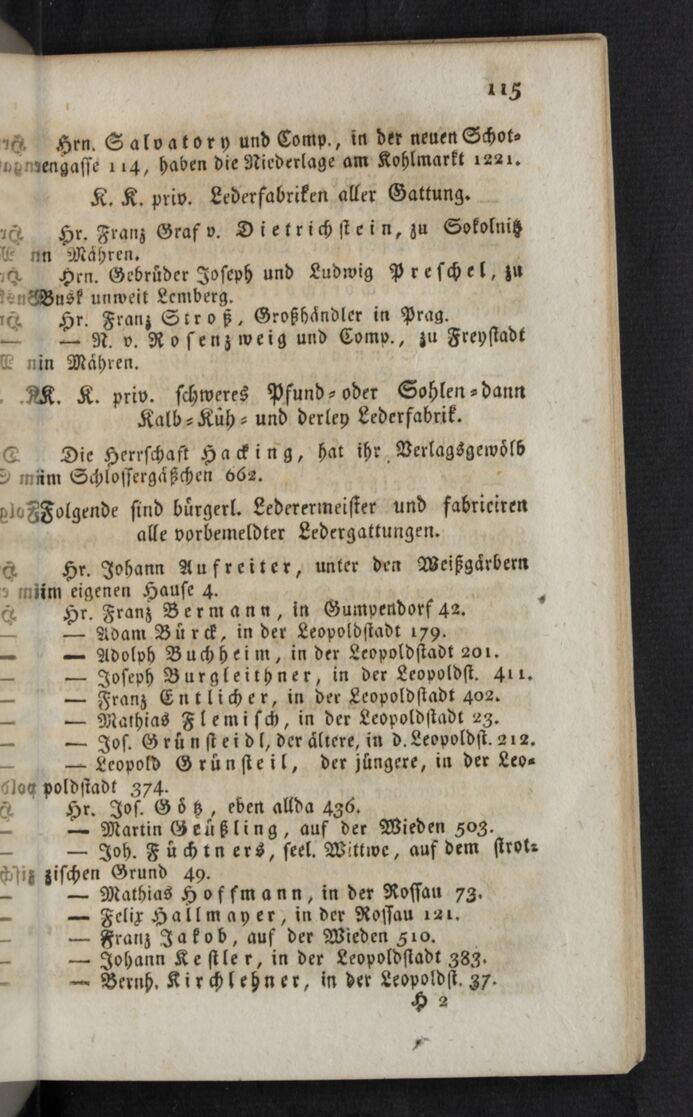 115
Hrn. Salvatory und Comp., in der neuen Schot-
engasse 114, haben die Niederlage am Kohlmarkt 1221.
K. K. priv. Lederfabriken aller Gattung.
Hr. Franz Graf v. Dietrichstein, zu Sokolnitz
in Mähren.
Hrn. Gebrüder Joseph und Ludwig Preschel, zu
Busk unweit Lemberg.
Hr. Franz Stroß, Großhändler in Prag.
— N. v. Rosenzweig und Comp., zu Freystadt
in Mähren.
K. K. priv. schweres Pfund- oder Sohlen- dann
Kalb- Küh- und derley Lederfabrik.
Die Herrschaft Hacking, hat ihr Verlagsgewölb
im Schlossergäßchen 662.
Folgende sind bürgerl. Lederermeister und fabriciren
alle vorbemeldter Ledergattungen.
Hr. Johann Aufreiter, unter den Weißgärbern
im eigenen Hause 4.
Hr. Franz Bermann, in Gumpendorf 42.
— Adam Bürck, in der Leopoldstadt 179.
— Adolph Buchheim, in der Leopoldstadt 201.
— Joseph Burgleithner, in der Leopoldst. 411.
— Franz Entlicher, in der Leopoldstadt 402.
— Mathias Flemisch, in der Leopoldstadt 23.
— Jos. Grünsteidl, der ältere, in d. Leopoldst. 212.
— Leopold Grünsteil, der jüngere, in der Leo-
poldstadt 374.
Hr. Jos. Götz, eben allda 436.
— Martin Geüßling, auf der Wieden 503.
— Joh. Füchtners, seel. Wittwe, auf dem strot-
zischen Grund 49.
— Mathias Hoffmann, in der Rossau 73.
— Felix Hallmayer, in der Rossau 121.
— Franz Jakob, auf der Wieden 510.
— Johann Kestler, in der Leopoldstadt 383.
— Bernh. Kirchlehner, in der Leopoldst. 37.
H 2